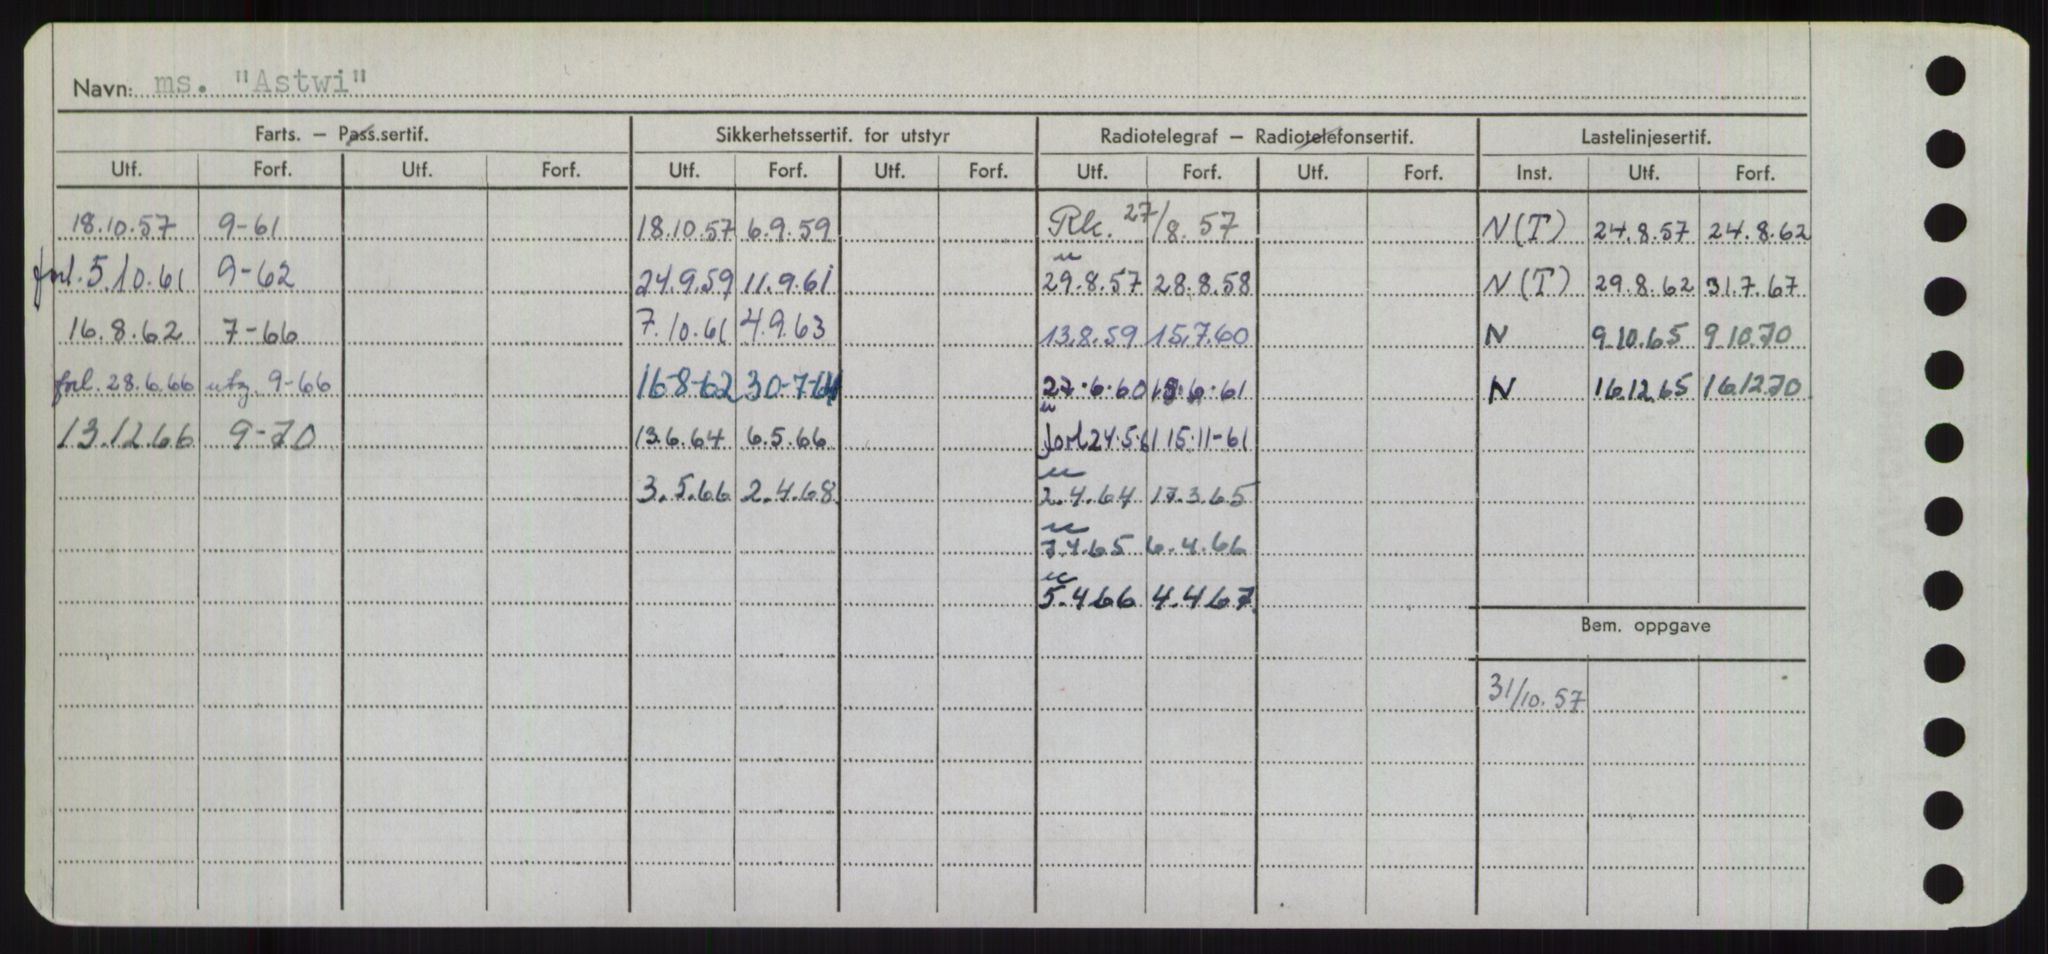 Navn: ms. "Astwi"
Farts. – Pass.sertif. Sikkerhetssertif. for utstyr Radiotelegraf – Radiotelefonsertif. Lastelinjesertif.
Utf. Forf. Utf. Forf. Utf. Forf. Utf. Forf. Utf. Forf. Utf. Forf. Inst. Utf. Forf.
18.10.57 9-61 18.10.57 6.9.59 Rk. 27/8.57 N(T) 24.8.57 24.8.62
u
forl. 5.10.61 9-62 24.9.59 11.9.61 29.8.57 28.8.58 N(T) 29.8.62 31.7.67
16.8.62 7-66 7.10.61 4.9.63 13.8.59 15.7.60 N 9.10.65 9.10.70
forl. 28.6.66 utg. 9-66 16-8-62 30-7-64 27.6.60 15.6.61 N 16.12.65 16.12.70
u
13.12.66 9-70 13.6.64 6.5.66 forl 24.5.61 15.11-61
u
3.5.66 2.4.68 2.4.64 17.3.65
u
7.4.65 6.4.66
u
5.4.66 4.4.67
Bem. oppgave
31/10.57